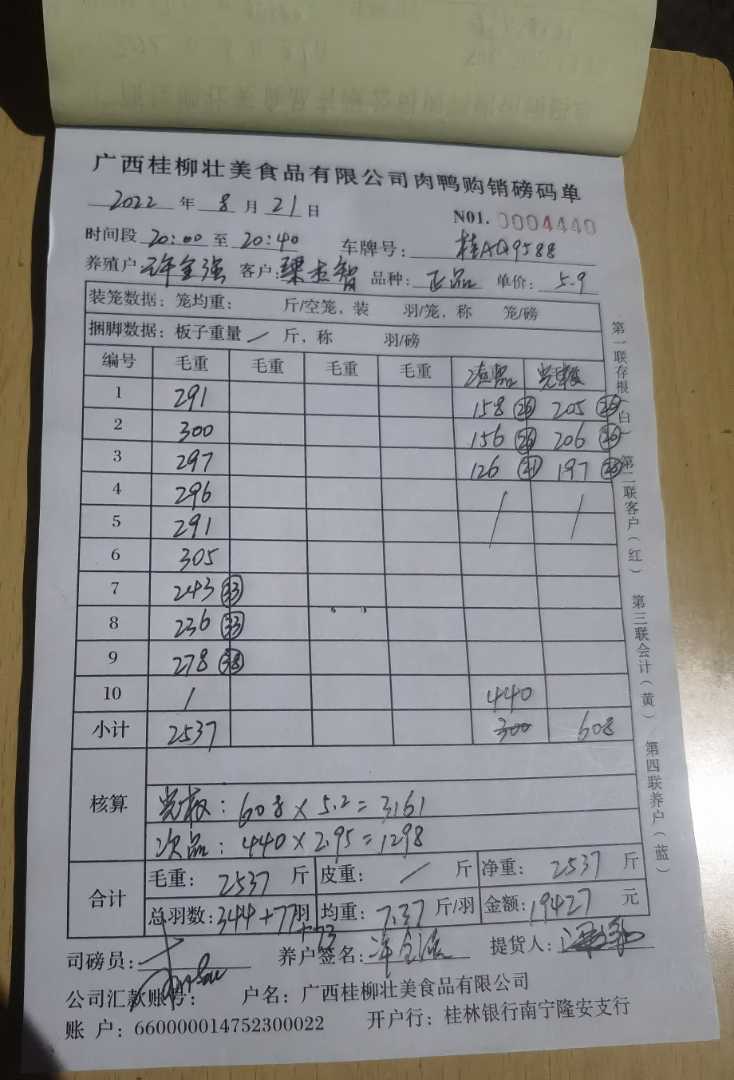 广西桂柳壮美食品有限公司肉鸭购销磅码单
2022 年 8 月 21 日
N01. 0004440
时间段 20:00 至 20:40 车牌号: 桂AQ9588
养殖户: 许全强 客户: 梁 智 品种: 正品 单价: 5.9
装笼数据: 笼均重: 斤/空笼, 装 羽/笼, 称 笼/磅
捆脚数据: 板子重量 / 斤, 称 羽/磅
编号 毛重 毛重 毛重 毛重 次品 光板
1 291 158 205
2 300 156 206
3 297 126 197
4 296 / /
5 291
6 305
7 243 33
8 236 33
9 278 38
10 / 440
小计 2537 300 608
核算
光板: 608 × 5.2 = 3161
次品: 440 × 2.95 = 1298
合计
毛重: 2537 斤 皮重: / 斤 净重: 2537 斤
总羽数: 344+77羽 均重: 7.37 斤/羽 金额: 19427 元
+73
司磅员: 养户签名: 许全强 提货人:
公司汇款账号: 户名: 广西桂柳壮美食品有限公司
账 户: 660000014752300022 开户行: 桂林银行南宁隆安支行
第一联存根(白) 第二联客户(红) 第三联会计(黄) 第四联养户(蓝)